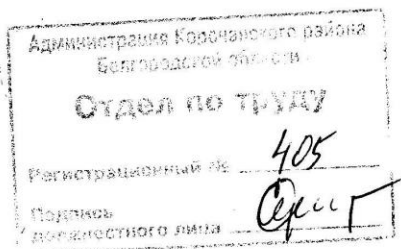 Администрация Корочанского района
Белгородской области
Отдел по труду
Регистрационный № 405
Подпись
должностного лица